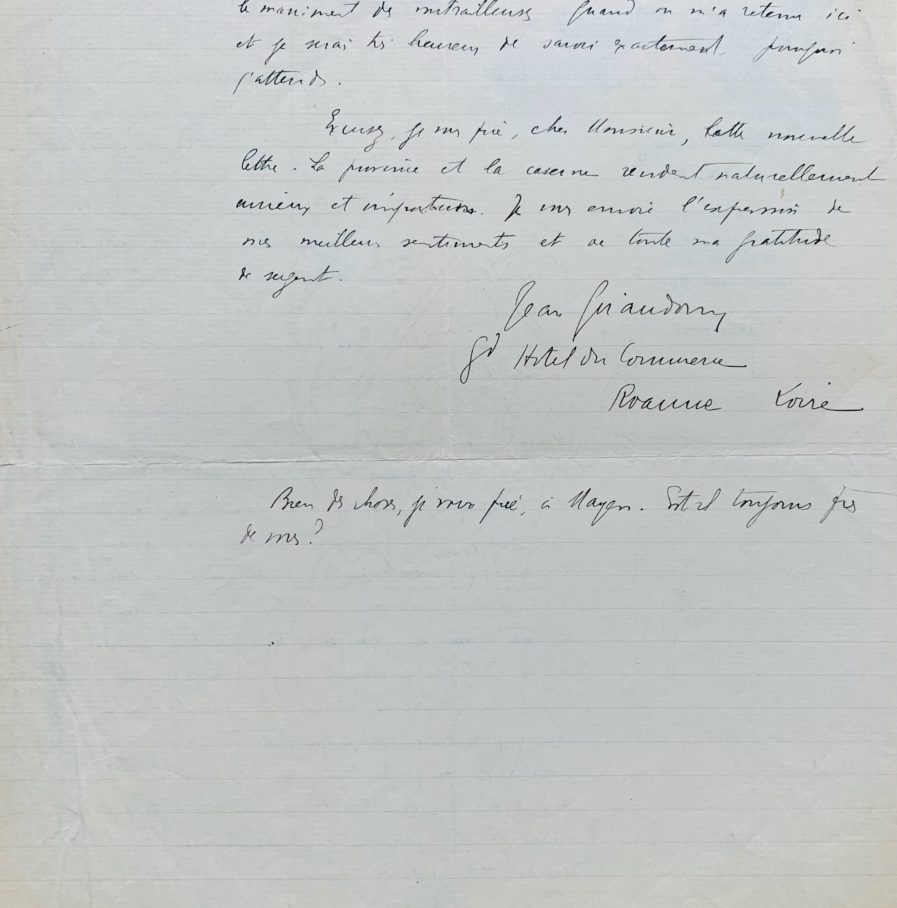 le maniment des mitrailleuses quand on m'a retenu ici
et je serai très heureux de savoir exactement pourquoi
j'attends.
Excusez, je vous prie, cher Monsieur, cette nouvelle
lettre. La province et la caserne rendent naturellement
curieux et importuns. Je vous envoie l'expression de
mes meilleurs sentiments et de toute ma gratitude
de sergent.
Jean Giraudoux
Gd Hotel du Commerce
Roanne Loire
Bien des choses, je vous prie, à Mayen. Est il toujours près
de vous?